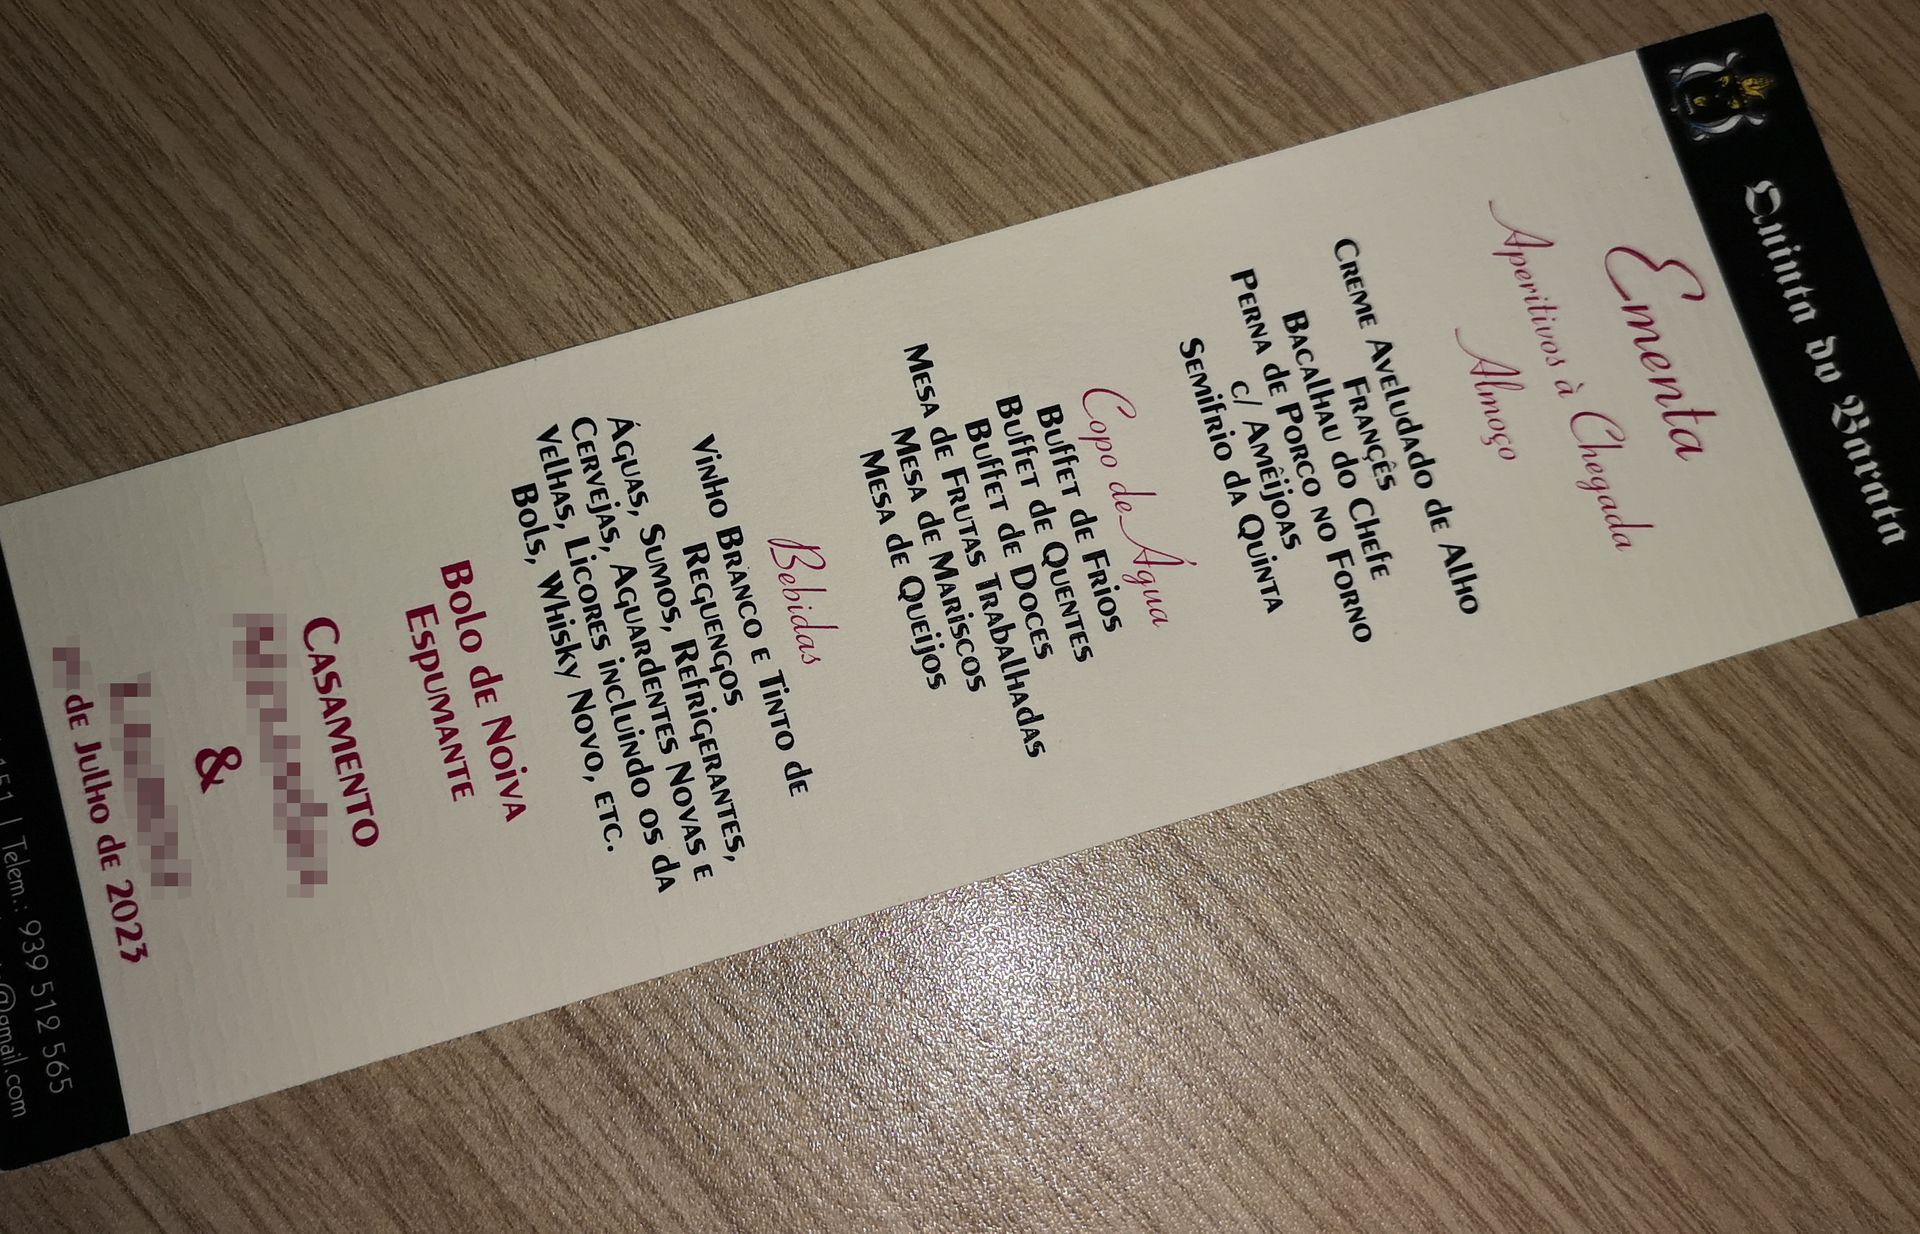 Quinta do Barata
Ementa
Aperitivos à Chegada
Almoço
Creme Aveludado de Alho
Françês
Bacalhau do Chefe
Perna de Porco no Forno
c/ Amêijoas
Semifrio da Quinta
Copo de Água
Buffet de Frios
Buffet de Quentes
Buffet de Doces
Mesa de Frutas Trabalhadas
Mesa de Mariscos
Mesa de Queijos
Bebidas
Vinho Branco e Tinto de
Reguengos
Águas, Sumos, Refrigerantes,
Cervejas, Aguardentes Novas e
Velhas, Licores incluindo os da
Bols, Whisky Novo, etc.
Bolo de Noiva
Espumante
Casamento
&
de Julho de 2023
151 | Telem.: 939 512 565
@gmail.com